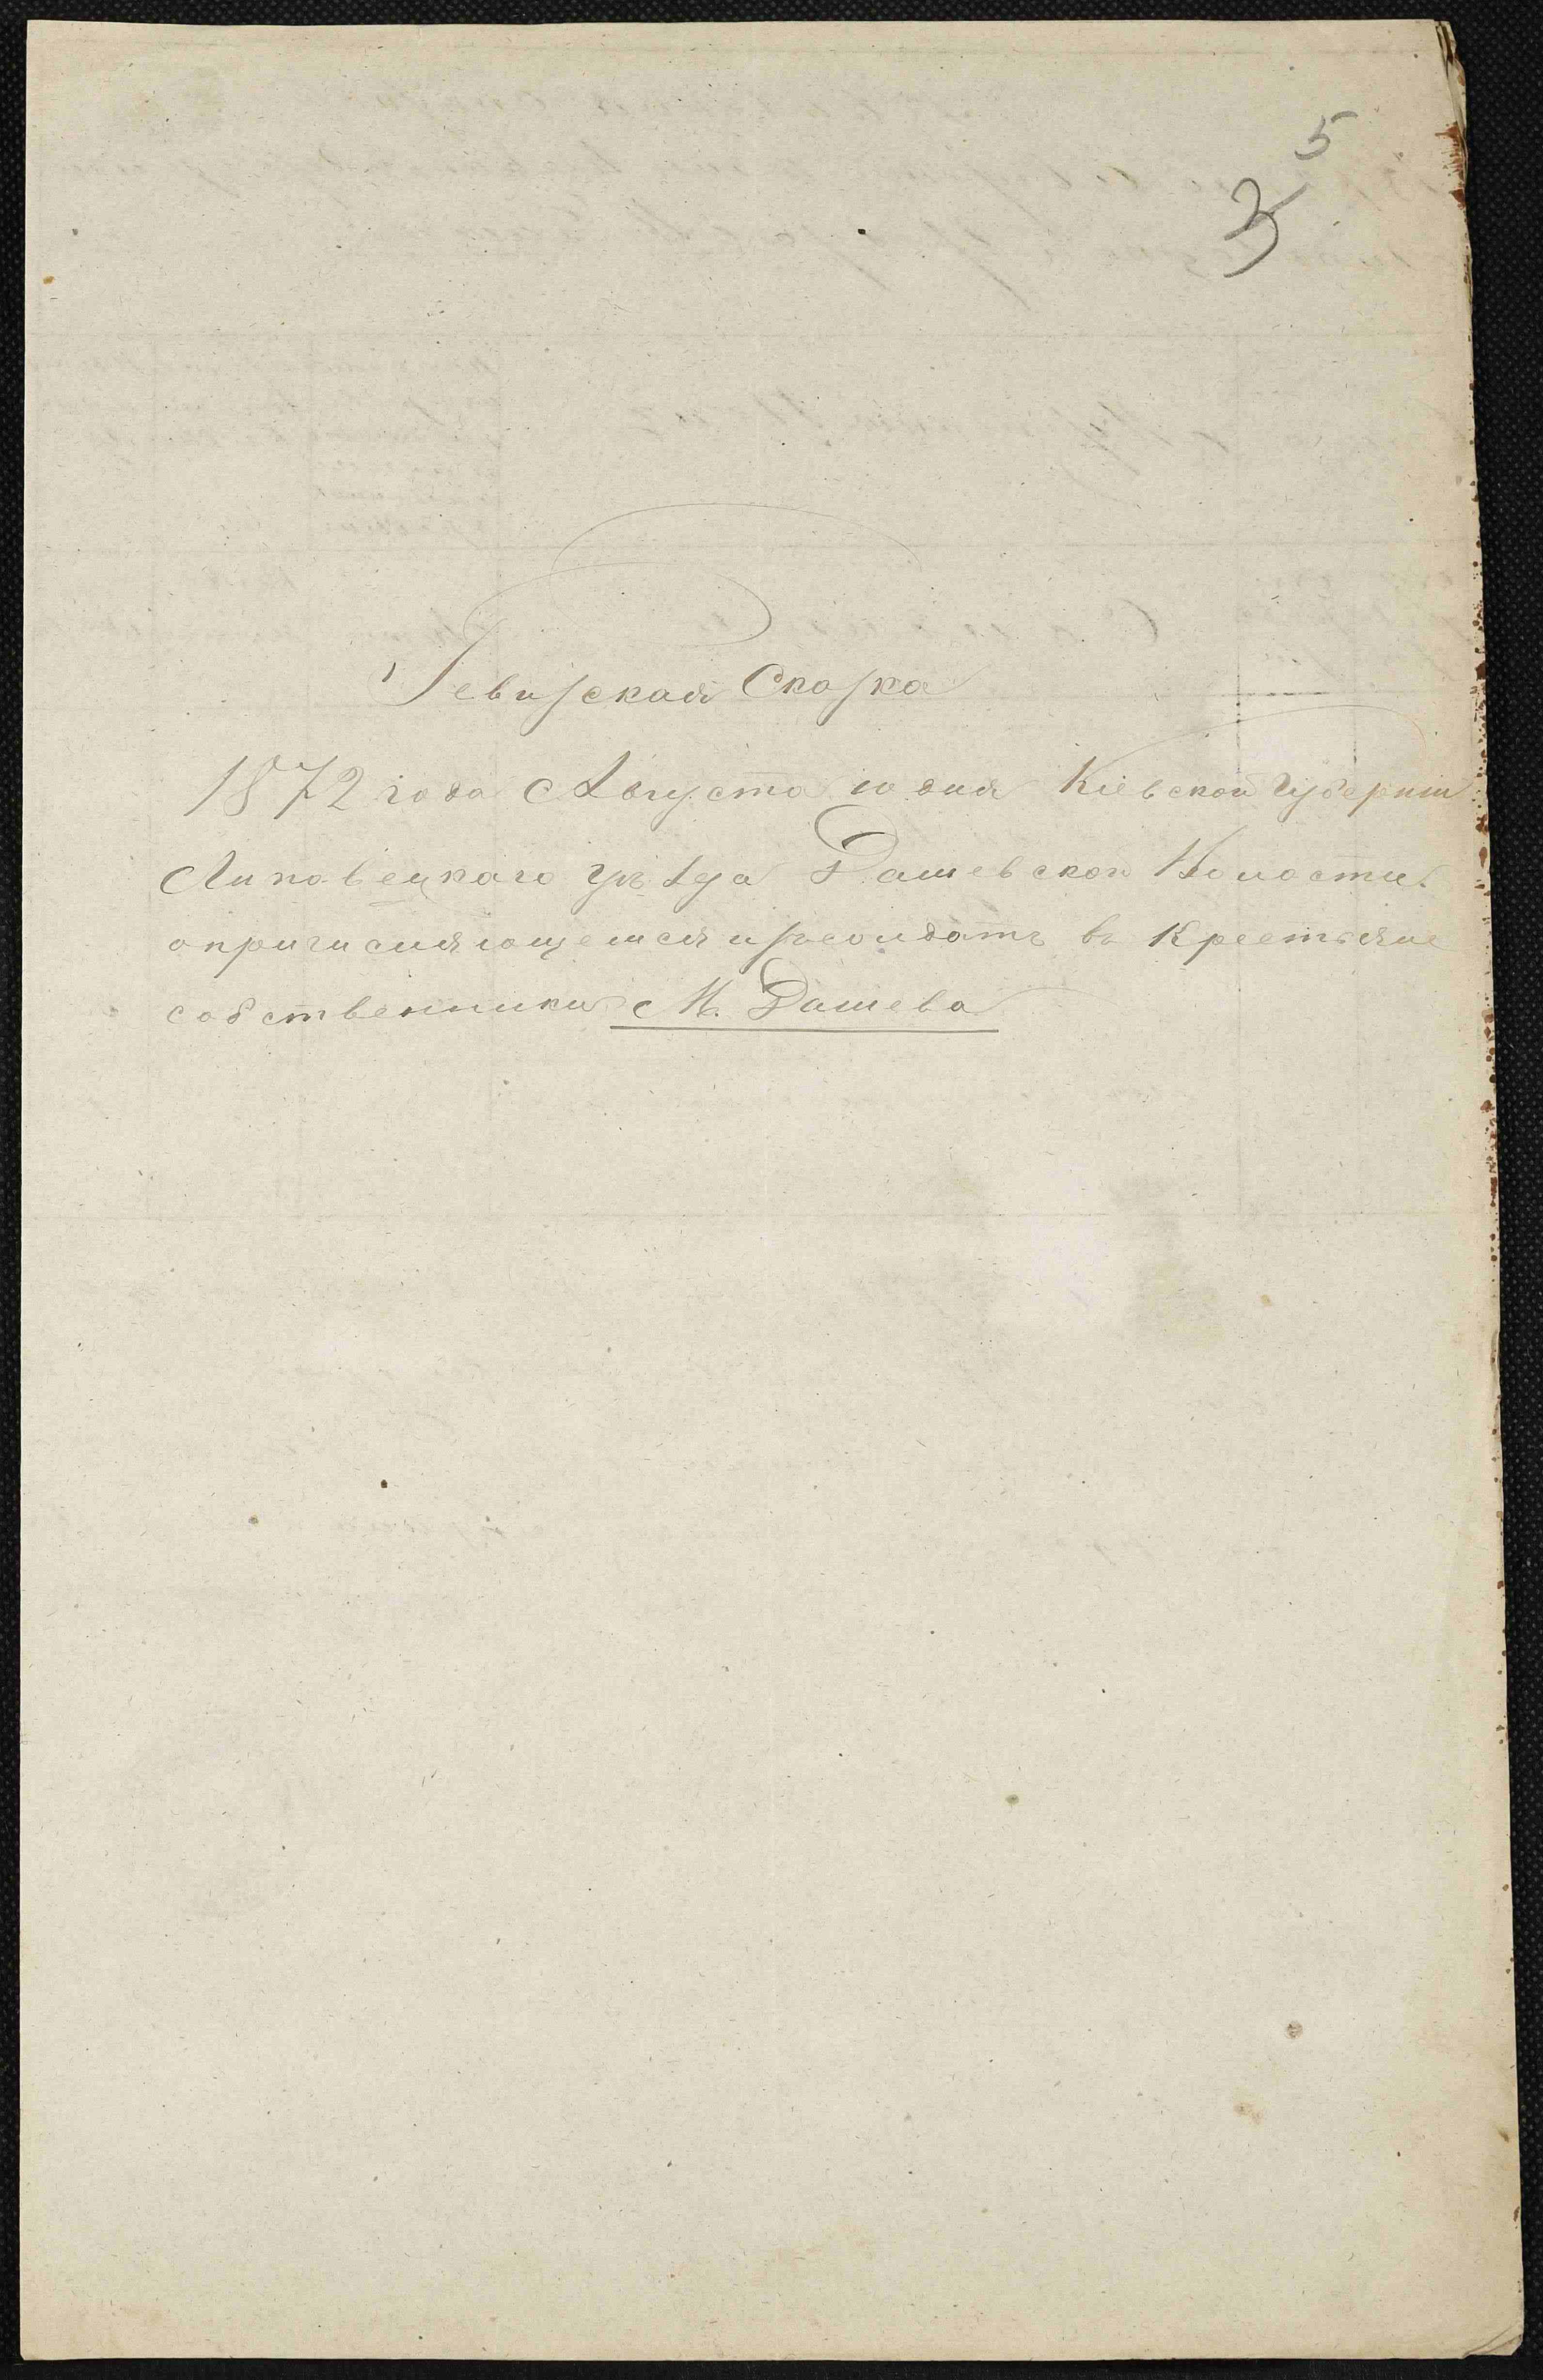 5
3
Ревизская Сказка
1872 года Августа 10 дня Кіевской Губерніи
Липовецкаго уѣзда Дашевской Волости.
о причисляющемся изъ солдатъ въ Крестьяне
собственники М. Дашева